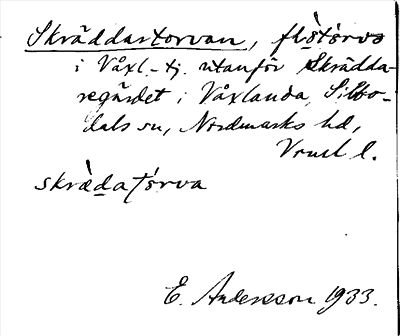 Skräddartorvan, flìtórva
i Våxl-tj. utanför Skrädda-
regärdet i Våxlanda, Silbo-
dals sn, Nordmarks hd,
Vrml l.
skræ̀datórva
E. Andersson 1933.